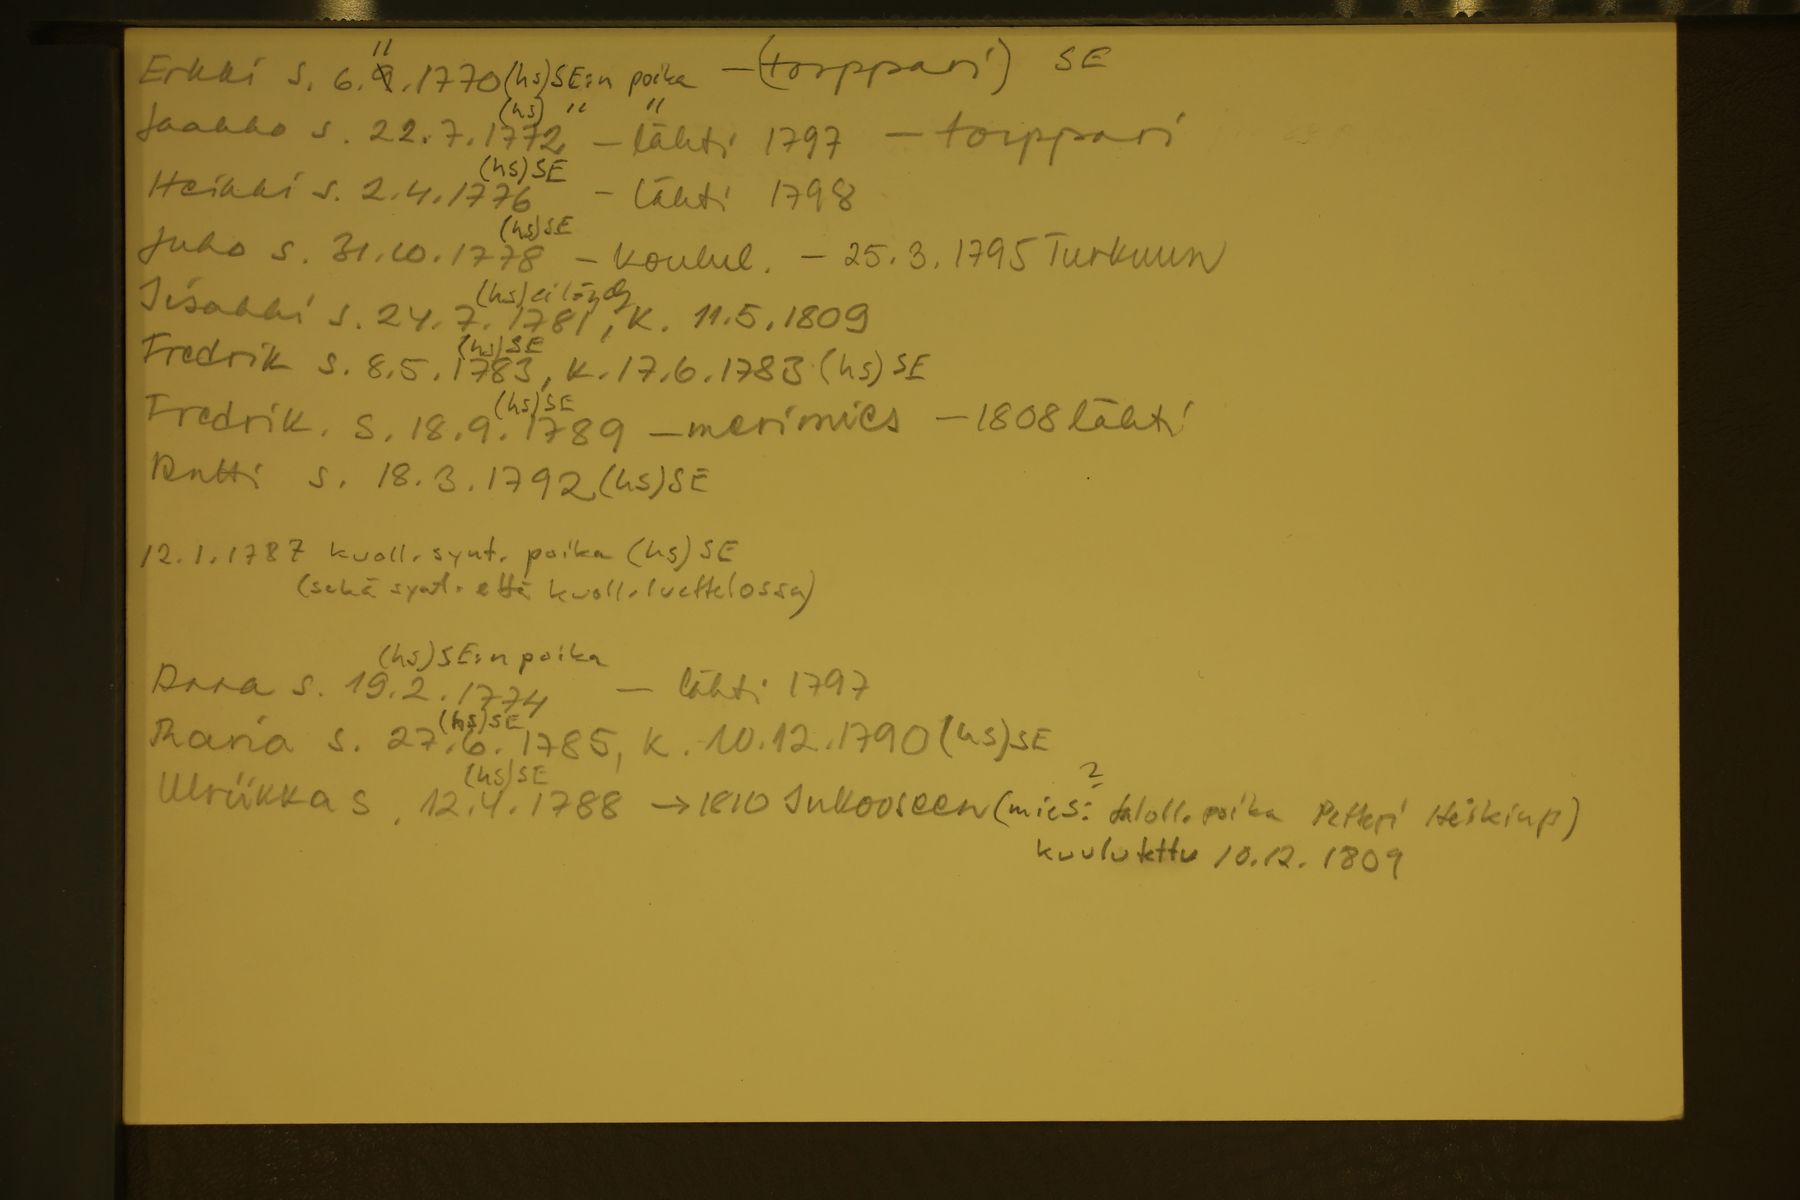 Erkki s. 6.11.1770 (hs) SE:n poika – (torppari) SE
Jaakko s. 22.7.1772 (hs) " " – lähti 1797 – torppari
Heikki s. 2.4.1776 (hs) SE – lähti 1798
Juho s. 31.10.1778 (hs) SE – koulul. – 25.3.1795 Turkuun
Iisakki s. 24.7.1781 (hs) ei löydy, k. 11.5.1809
Fredrik s. 8.5.1783 (hs) SE, k. 17.6.1783 (hs) SE
Fredrik. s. 18.9.1789 (hs) SE – merimies – 1808 lähti
Antti s. 18.3.1792 (hs) SE
12.1.1787 kuoll. synt. poika (hs) SE
(sekä synt. että kuoll. luettelossa)
Anna s. 19.2.1774 (hs) SE:n poika – lähti 1797
Maria s. 27.6.1785 (hs) SE, k. 10.12.1790 (hs) SE
Ulriikka s. 12.4.1788 (hs) SE → 1810 Inkooseen (mies: ? taloll. poika Petteri
kuulutettu 10.12.1809